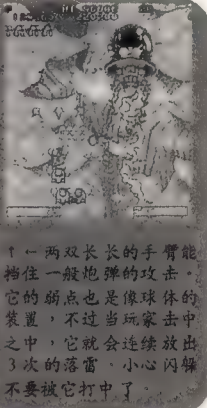 ↑←两双长长的手臂能
挡住一般炮弹的攻击。
它的弱点也是像球体的
装置,不过当玩家击中
之中,它就会连续放出
3次的落雷。小心闪躲
不要被它打中了。